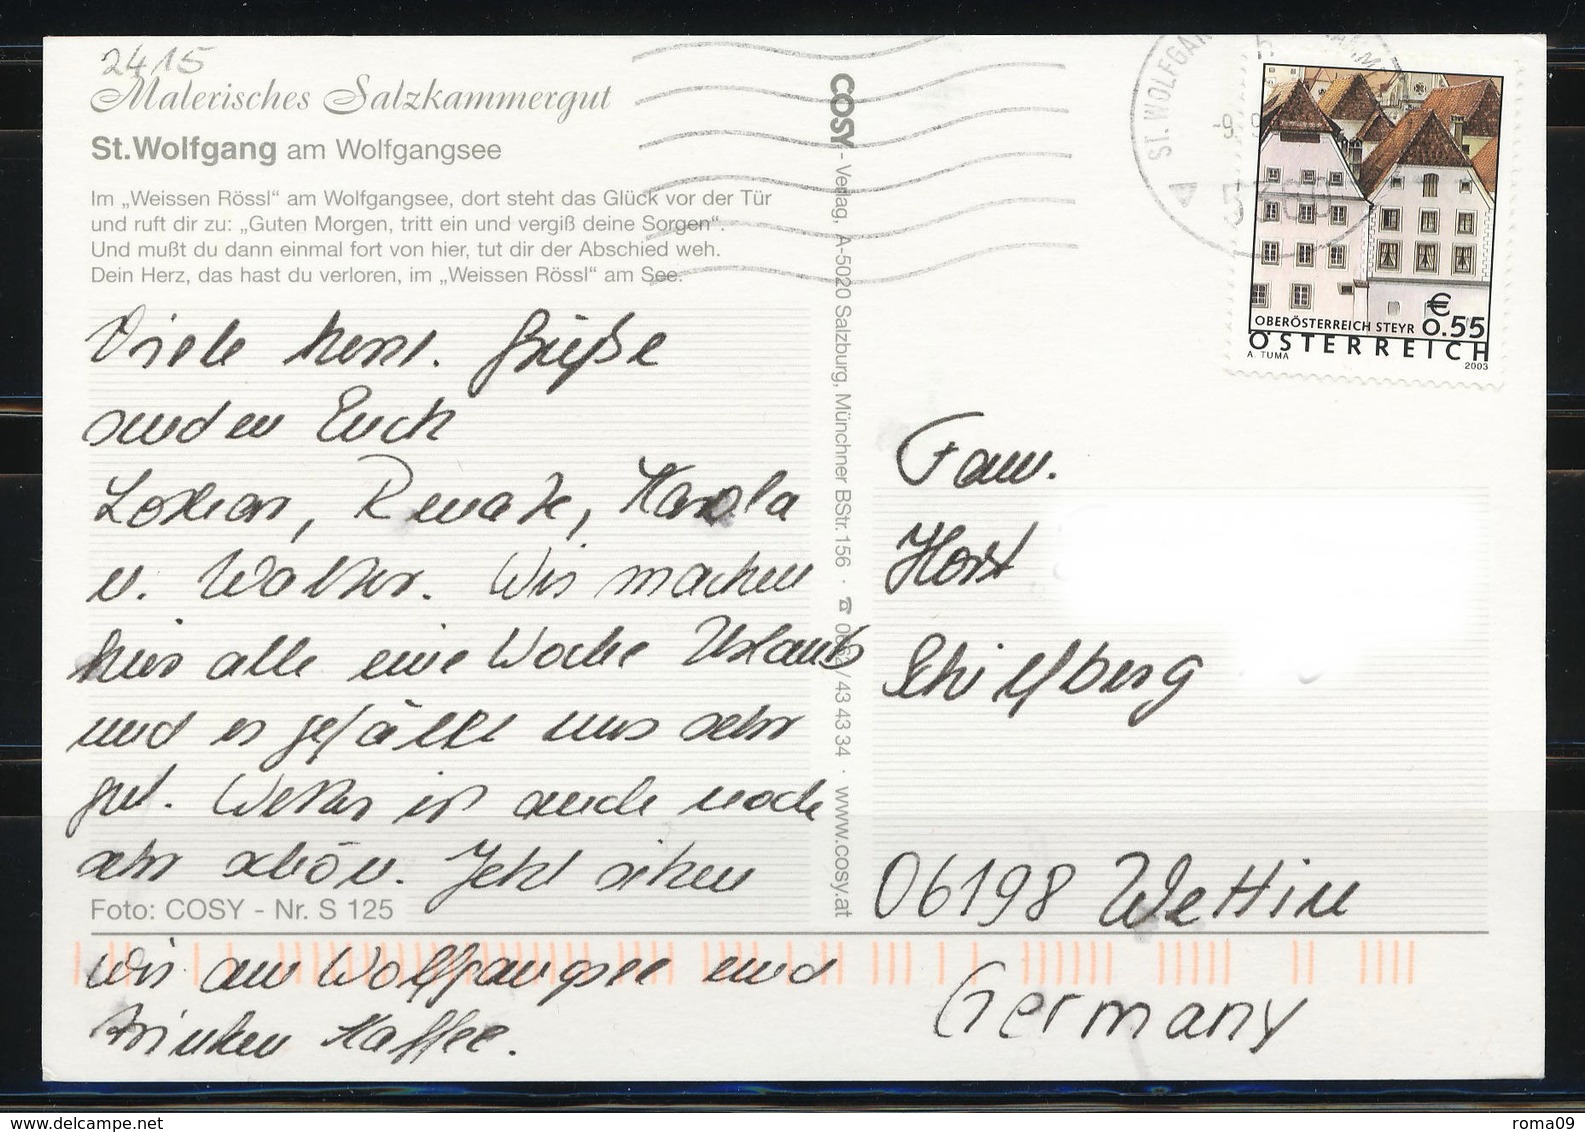 2415
Malerisches Salzkammergut
St.Wolfgang am Wolfgangsee
Im „Weissen Rössl“ am Wolfgangsee, dort steht das Glück vor der Tür
und ruft dir zu: „Guten Morgen, tritt ein und vergiß deine Sorgen“.
Und mußt du dann einmal fort von hier, tut dir der Abschied weh.
Dein Herz, das hast du verloren, im „Weissen Rössl“ am See.
Viele herzl. Grüße
senden Euch
Lothar, Renate, Karola
u. Walter. Wir machen
hier alle eine Woche Urlaub
und es gefällt uns sehr
gut. Wetter ist auch noch
sehr schön. Jetzt sitzen
Foto: COSY - Nr. S 125
wir am Wolfgangsee und
trinken Kaffee.
COSY - Verlag, A-5020 Salzburg, Münchner BStr. 156 · ☎ 0662/43 43 34 · www.cosy.at
ST. WOLFGANG
-9. 9
€
0.55
OBERÖSTERREICH STEYR
ÖSTERREICH
A. TUMA
2003
Fam.
Horst
Schilfberg
06198 Wettin
Germany
roma09